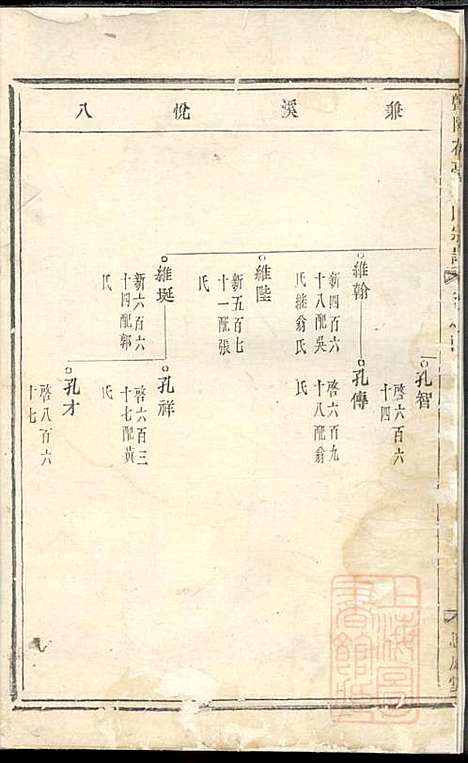 兼溪悅八
孔智
啓六百六
十四
維翰
新四百六
十八配吳
氏繼翁氏
孔傳
啓六百九
十八配翁
氏
維陛
新五百七
十一配張
氏
維埏
新六百六
十四配郭
氏
孔祥
啓六百三
十七配黃
氏
孔才
啓八百六
十七